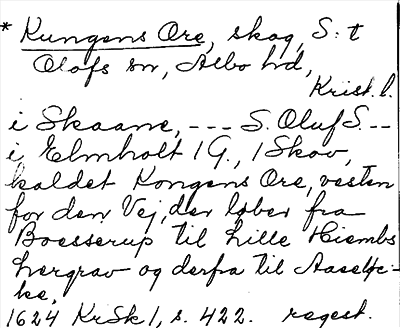 * Kungens Ore, skog, S:t
Olofs sn, Albo hd,
Krist. l.
i Skaane, --- S. Oluf S. --
i Elmholt 1 G., 1 Skov,
kaldet Kongens Ore, vesten
for den Vej, der løber fra
Boesserup til Lille Hiembs
hergrav og derfra til
ke,
1624 KrSk 1, s. 422. regest.